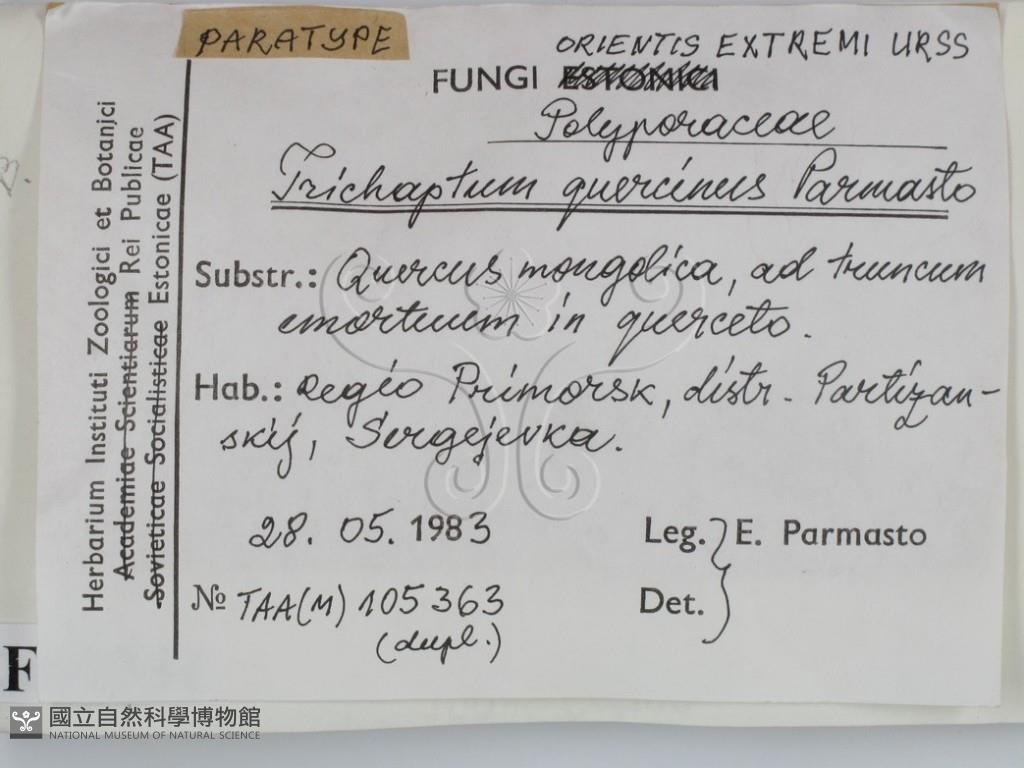 PARATYPE
ORIENTIS EXTREMI URSS
FUNGI ESTONICI
Polyporaceae
Trichaptum quercinus Parmasto
Substr.: Quercus mongolica, ad truncum
emortuum in querceto.
Hab.: Regio Primorsk, distr. Partizan-
skij, Sergejevka.
28. 05. 1983
Leg. } E. Parmasto
№ TAA(M) 105363
Det.
(dupl.)
Herbarium Instituti Zoologici et Botanici
Academiae Scientiarum Rei Publicae
Sovieticae Socialisticae Estonicae (TAA)
F
國立自然科學博物館
NATIONAL MUSEUM OF NATURAL SCIENCE